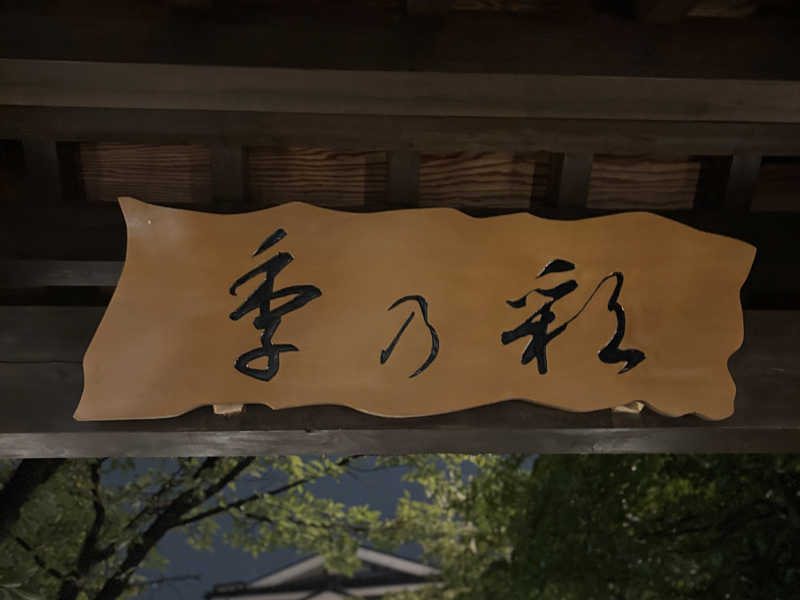 季乃彩